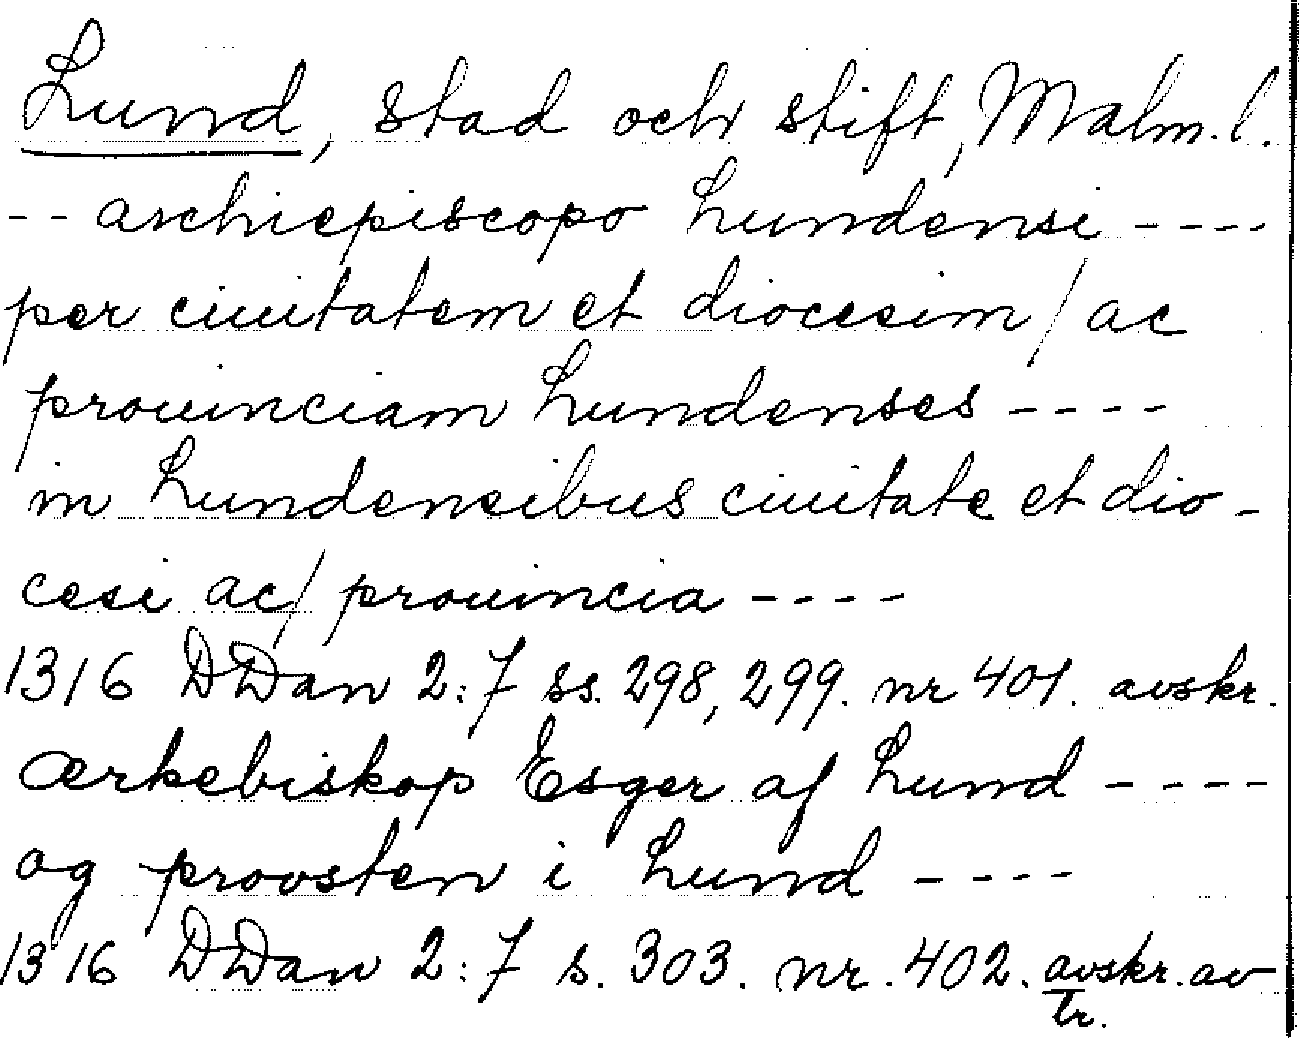 Lund, stad och stift, Malm. l.
-- archiepiscopo Lundensi ----
per ciuitatem et diocesim / ac
prouinciam Lundenses ----
in Lundensibus ciuitate et dio-
cesi ac / prouincia ----
1316 DDan 2:7 ss. 298, 299. nr 401. avskr.
ærkebiskop Esger af Lund ----
og provsten i Lund ----
1316 DDan 2:7 s. 303. nr. 402. avskr. av
tr.